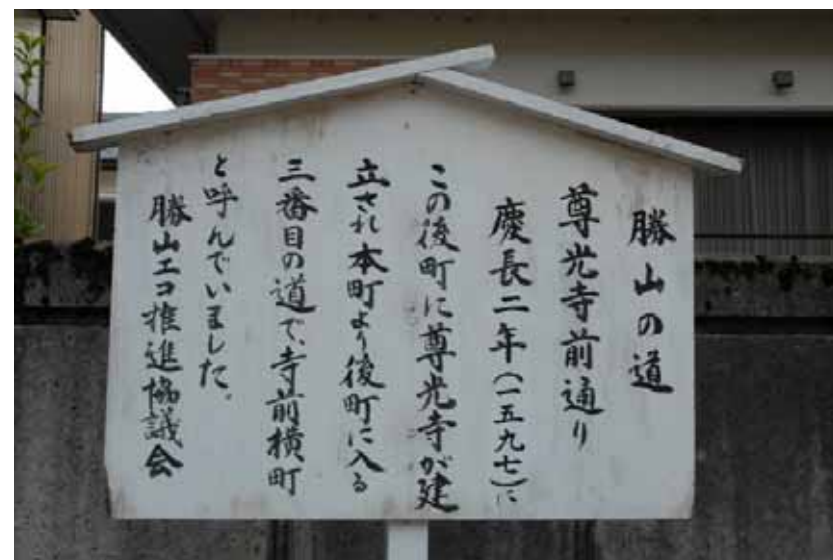 勝山の道
尊光寺前通り
慶長二年(一五九七)に
この後町に尊光寺が建
立され本町より後町に入る
三番目の道で、寺前横町
と呼んでいました。
勝山エコ推進協議会